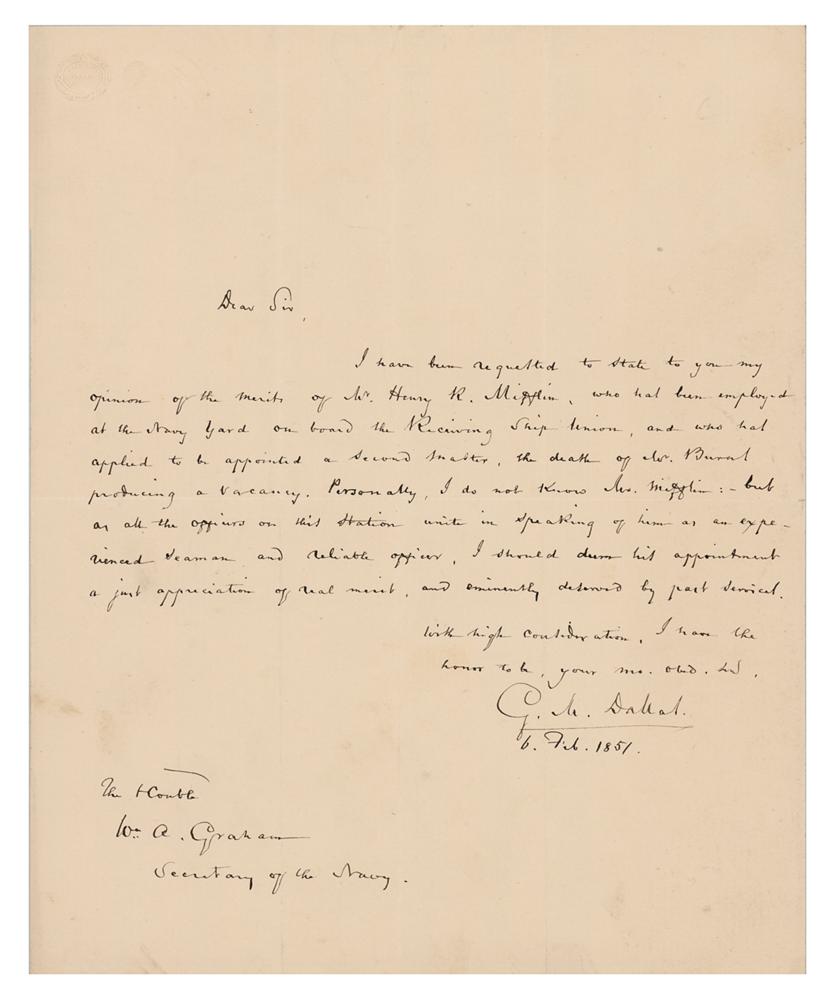 Dear Sir,
I have been requested to state to you my
opinion of the merits of Mr. Henry K. Mifflin, who has been employed
at the Navy Yard on board the Receiving Ship Union, and who has
applied to be appointed a Second Master, the death of Mr.
producing a vacancy. Personally, I do not know Mr. Mifflin:- but
as all the officers on this Station unite in speaking of him as an expe-
rienced seaman and reliable officer, I should deem his appointment
a just appreciation of real merit, and eminently deserved by past services.
With high consideration, I have the
honor to be, your mo. obed. Ser.
G. M. Dallas.
6. Feb. 1851.
The Honble
Wm A. Graham
Secretary of the Navy.